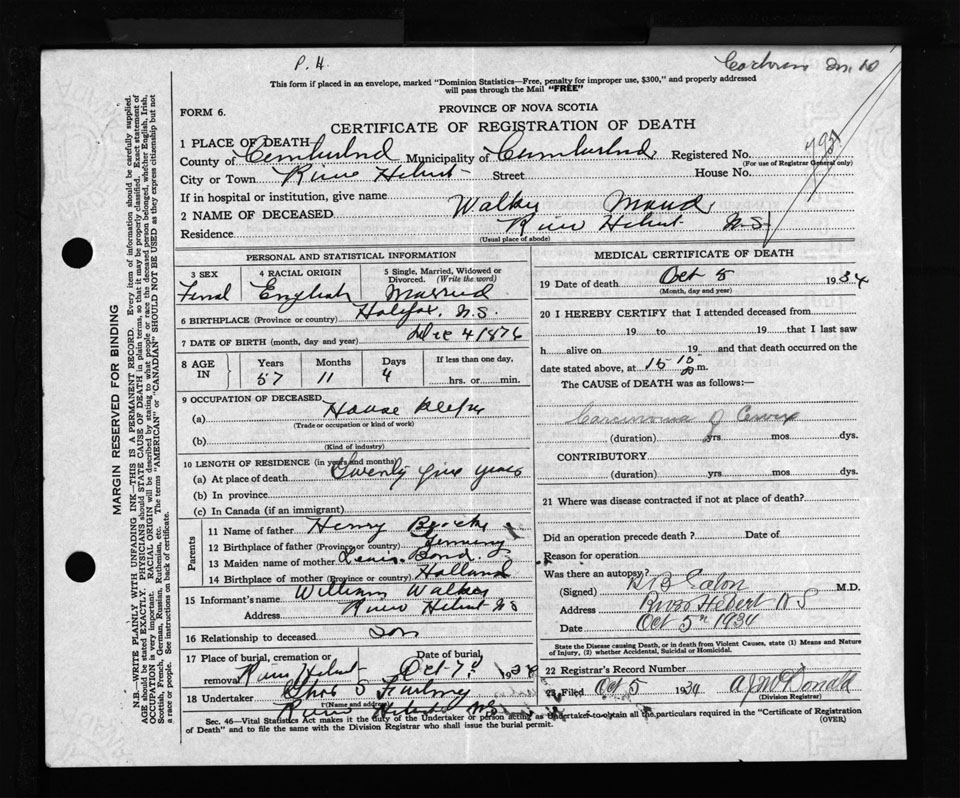 P. H.
This form if placed in an envelope, marked "Dominion Statistics—Free, penalty for improper use, $300," and properly addressed
will pass through the Mail "FREE"
FORM 6.
PROVINCE OF NOVA SCOTIA
CERTIFICATE OF REGISTRATION OF DEATH
1 PLACE OF DEATH
County of Municipality of Registered No.
(For use of Registrar General only)
City or Town River Hebert Street House No.
If in hospital or institution, give name
2 NAME OF DECEASED Walker Maud
Residence River Hebert N.S.
(Usual place of abode)
PERSONAL AND STATISTICAL INFORMATION
3 SEX 4 RACIAL ORIGIN 5 Single, Married, Widowed or Divorced. (Write the word)
English Married
6 BIRTHPLACE (Province or country) Halifax, N.S.
7 DATE OF BIRTH (month, day and year) Dec 4 1876
8 AGE IN Years Months Days If less than one day,
57 11 4 hrs. or min.
9 OCCUPATION OF DECEASED
(a) House keeper
(Trade or occupation or kind of work)
(b)
(Kind of industry)
10 LENGTH OF RESIDENCE (in years and months)
(a) At place of death Twenty five years
(b) In province
(c) In Canada (if an immigrant)
Parents
11 Name of father Henry
12 Birthplace of father (Province or country) Germany
13 Maiden name of mother Bond
14 Birthplace of mother (Province or country) Holland
15 Informant's name William Walker
Address River Hebert NS
16 Relationship to deceased son
17 Place of burial, cremation or removal Date of burial,
River Hebert Oct 7
18 Undertaker
(Name and address)
River Hebert NS
MEDICAL CERTIFICATE OF DEATH
19 Date of death Oct 5 1934
(Month, day and year)
20 I HEREBY CERTIFY that I attended deceased from
19 to 19 that I last saw
h alive on 19 and that death occurred on the
date stated above, at m.
The CAUSE of DEATH was as follows:—
Carcinoma of Cervix
(duration) yrs mos dys.
CONTRIBUTORY
(duration) yrs mos dys.
21 Where was disease contracted if not at place of death?
Did an operation precede death? Date of
Reason for operation
Was there an autopsy?
(Signed) Eaton M.D.
Address River Hebert N S
Date Oct 5th 1934
State the Disease causing Death, or in death from Violent Causes, state (1) Means and Nature
of Injury, (2) whether Accidental, Suicidal or Homicidal.
22 Registrar's Record Number
23 Filed Oct 5 1934 A J McDonald
(Division Registrar)
Sec. 46—Vital Statistics Act makes it the duty of the Undertaker or person acting as Undertaker to obtain all the particulars required in the "Certificate of Registration
of Death" and to file the same with the Division Registrar who shall issue the burial permit.
(OVER)
MARGIN RESERVED FOR BINDING
N.B.—WRITE PLAINLY WITH UNFADING INK—THIS IS A PERMANENT RECORD. Every item of information should be carefully supplied.
AGE should be stated EXACTLY. PHYSICIANS should STATE CAUSE OF DEATH in plain terms, so that it may be properly classified. Exact statement of
OCCUPATION is very important. RACIAL ORIGIN will be described by stating to what people or race the deceased person belonged, whether English, Irish,
Scottish, French, German, Russian, Ruthenian, etc. The terms "AMERICAN" or "CANADIAN" SHOULD NOT BE USED as they express citizenship but not
a race or people. See instructions on back of certificate.